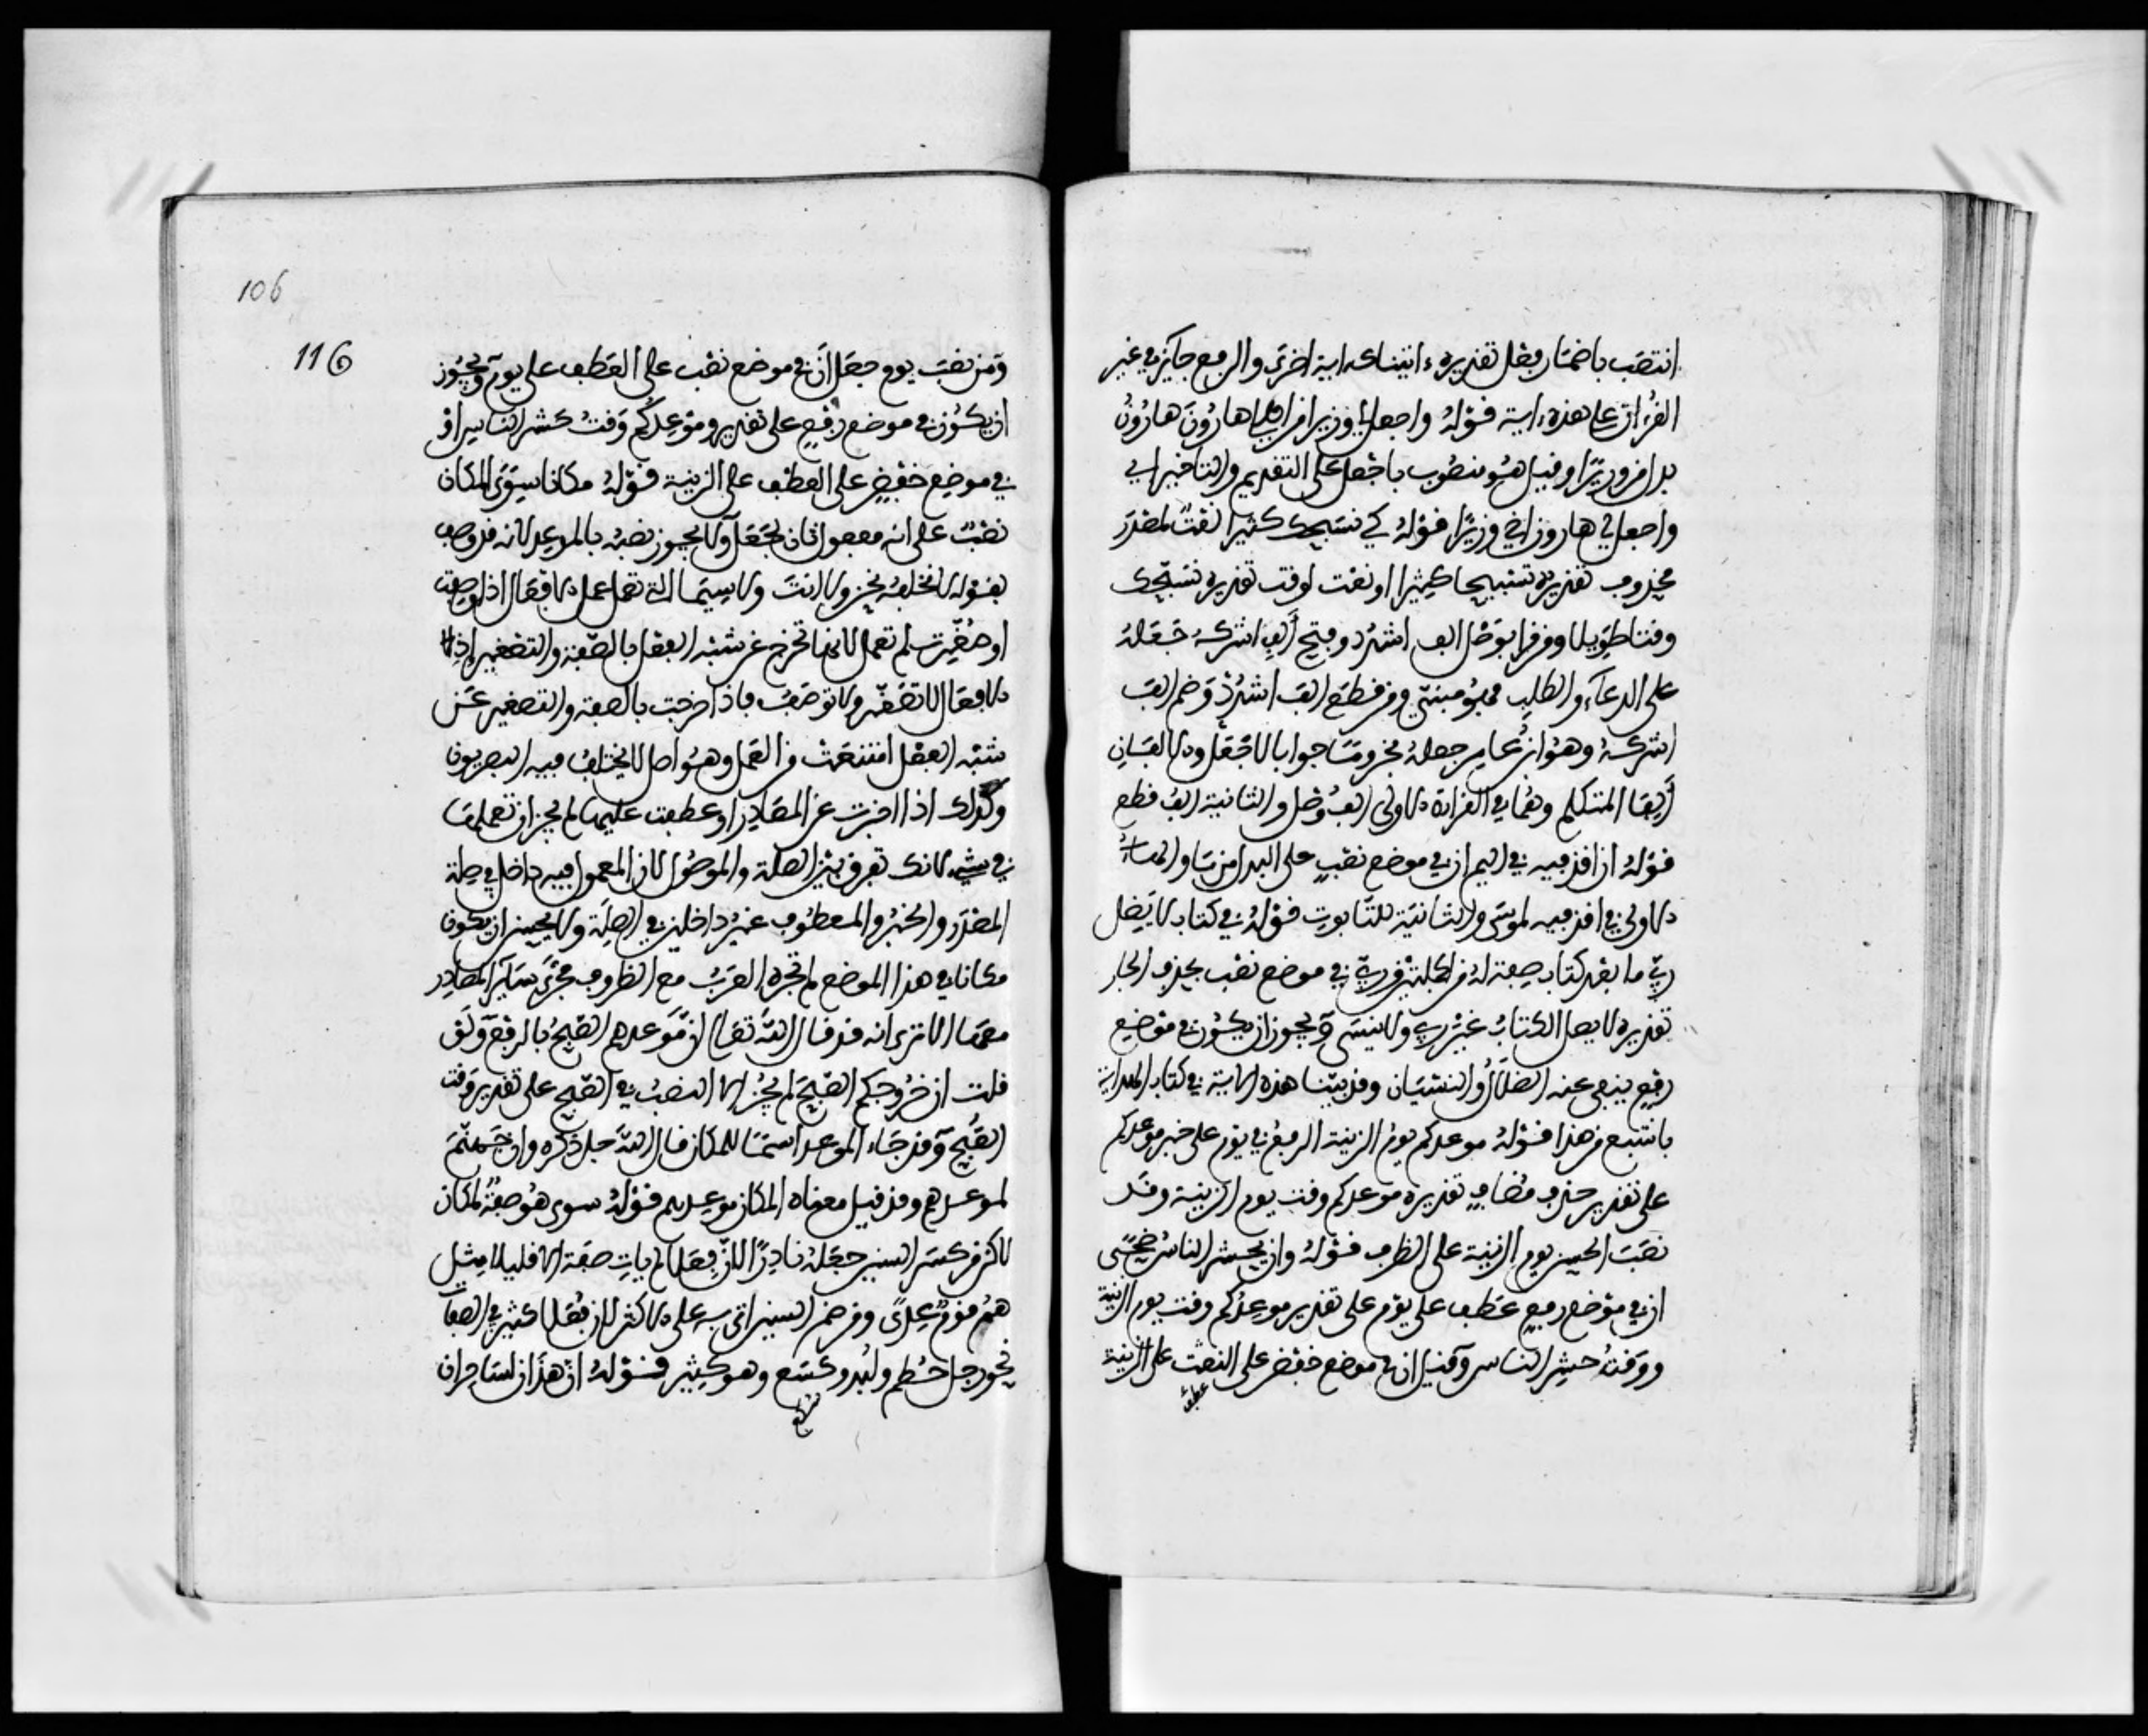 انتصب باضمار فعل تقديره ءاتيناك ءاية اخرى والرفع جايز في غير
القرءان على هذه ءاية قوله واجعل لي وزيرا من اهلي هارون هارون
بدل من وزيرا وقيل هو منصوب باجعل على التقديم والتاخير اي
واجعل لي هارون اخي وزيرا قوله كي نسبحك كثيرا نعت لمصدر
محذوف تقديره تسبيحا كثيرا او نعت لوقت تقديره نسبحك
وقتا طويلا ومن قرا بوصل الف اشدد وفتح ألف اشركه جعله
على الدعاء والطلب فهو مبني ومن قطع الف اشدد وضم الف
اشركه وهو ابن عامر جعله مجزوما جوابا لاجعل والالفان
ألفا المتكلم وهما في القراءة الاولى الف وصل والثانية الف قطع
قوله ان اقذفيه في اليم ان في موضع نصب على البدل من ما والهاء
الاولى في اقذفيه لموسى والثانية للتابوت قوله في كتاب لا يضل
ربي ما بعد كتاب صفة له من الجملة وربي في موضع نصب بحذف الجار
تقديره لا يضل الكتاب عن ربي ولا ينسى ويجوز ان يكون في موضع
رفع ينفي عنه الضلال والنسيان وقد بينا هذه الاية في كتاب الهداية
بابتسع من هذا قوله موعدكم يوم الزينة الرفع في يوم على خبر موعدكم
على تقدير حذف مضاف تقديره موعدكم وقت يوم الزينة وقد
نصب الحسن يوم الزينة على الظرف قوله وان يحشر الناس ضحى
ان في موضع رفع عطف على يوم على تقدير موعدكم وقت يوم الزينة
ووقت حشر الناس وقيل ان في موضع خفض على النعت على الزينة
عطف
106
116
ومن نصب يوم جعل ان في موضع نصب على العطف على يوم ويجوز
ان يكون في موضع رفع على تقدير وموعدكم وقت حشر الناس او
في موضع خفض على العطف على الزينة قوله مكانا سوى المكان
نصب على انه مفعول ثان لجعل ولا يجوز نصبه بالموعد لانه قد وصف
بقوله لا نخلفه نحن ولا انت والاسماء التي تعمل عمل الافعال اذا وصفت
او صغرت لم تعمل لانها تخرج عن شبه الفعل بالصفة والتصغير اذ
الافعال لا تصغر ولا توصف فاذا خرجت بالصفة والتصغير عن
شبه الفعل امتنعت من العمل وهو اصل لا يختلف فيه البصريون
وكذلك اذا اخبرت عن المصادر او عطفت عليها لم يجز ان تعملها
في شيء لانك تفرق بين الصلة والموصول لان المعمول فيه داخل في صلة
المصدر والخبر والمعطوف غير داخلين في الصلة ولا يحسن ان يكون
مكانا في هذا الموضع لم تجره العرب مع الظروف مجرى ساير المصادر
معها الا ترى انه قد قال الله تعالى ان موعدهم الصبح بالرفع ولو
قلت ان خروجكم الصبح لم يجز الا النصب في الصبح على تقدير وقت
الصبح وقد جاء الموعد اسما للمكان قال الله جل ذكره وان جهنم
لموعدهم وقد قيل معناه المكان موعدهم قوله سوى هو صفة لمكان
لاكن من كسر السين جعله نادرا لان فعلا لم يات صفة الا قليلا مثل
هم قوم عدى ومن ضم السين اتى به على الاكثر لان فعلا كثير في الصفات
نحو رجل حطم ولبد وكسع وهو كثير قوله ان هذان لساحران